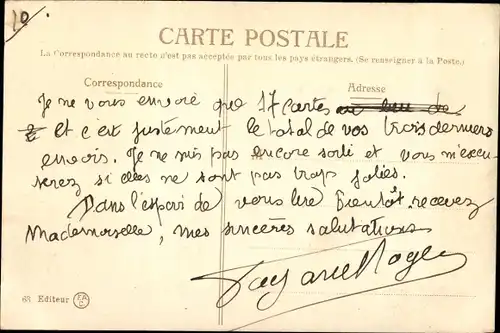 10
CARTE POSTALE
La Correspondance au recto n'est pas acceptée par tous les pays étrangers. (Se renseigner à la Poste.)
Correspondance
Adresse
Je ne vous envoie que 17 cartes au lieu de
2 Et c'est justement le total de vos trois derniers
envois. Je ne suis pas encore sorti et vous m'excu-
serez si elles ne sont pas trop jolies.
Dans l'espoir de vous lire bientôt. recevez
Mademoiselle, mes sincères salutations
Roger
63 Editeur